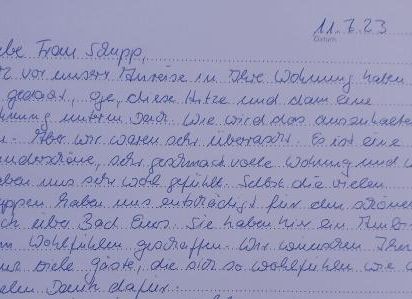 11.7.23
Datum
be Frau Stupp,
vor unserer Anreise in Ihre Wohnung haben
gedacht, oje, diese Hitze und dann eine
hnung unterm Dach. Wie wird das auszuhalten
n. Aber wir waren sehr überrascht. Es ist eine
underschöne, sehr geschmackvolle Wohnung und w
aben uns sehr wohl gefühlt. Selbst die vielen
ppen haben uns entschädigt für den schönen
ick über Bad Ems. Sie haben hier ein Ambien
m Wohlfühlen geschaffen. Wir wünschen Ihnen
viele Gäste, die sich so wohlfühlen wie w
elen Dank dafür.